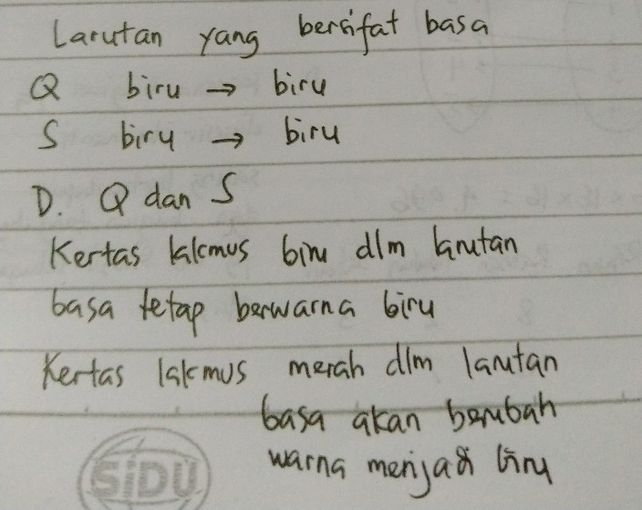 Larutan yang bersifat basa
Q biru → biru
S biru → biru
D. Q dan S
Kertas lakmus biru dlm larutan
basa tetap berwarna biru
Kertas lakmus merah dlm larutan
basa akan berubah
warna menjadi biru
SiDU